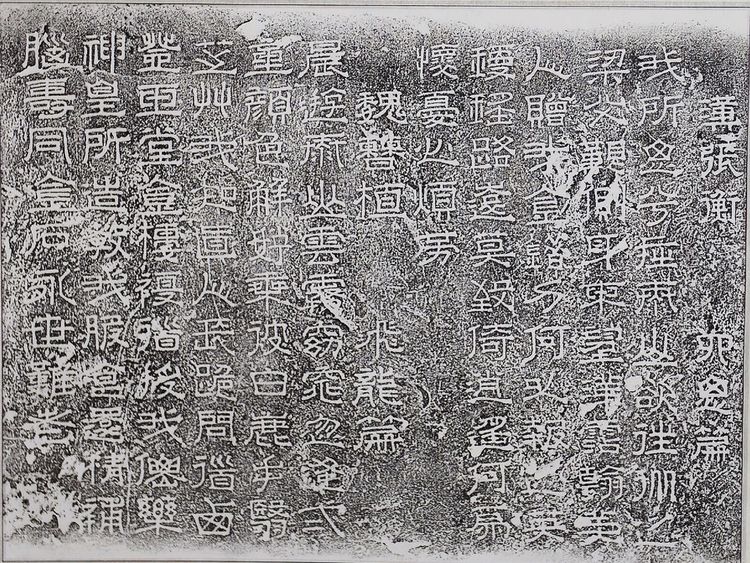 漢張衡　四思篇
我所思兮在泰山欲往從之
梁父艱側身東望涕霑翰美
人贈我金錯刀何以報之英
瓊瑤路遠莫致倚逍遙何為
懷憂心煩勞
魏曹植　飛龍篇
晨遊泰山雲霧窈窕忽逢二
童顏色鮮好乘彼白鹿手翳
芝草我知真人長跪問道西
登玉堂金樓複道授我僊藥
神皇所造教我服食還精補
腦壽同金石永世難老